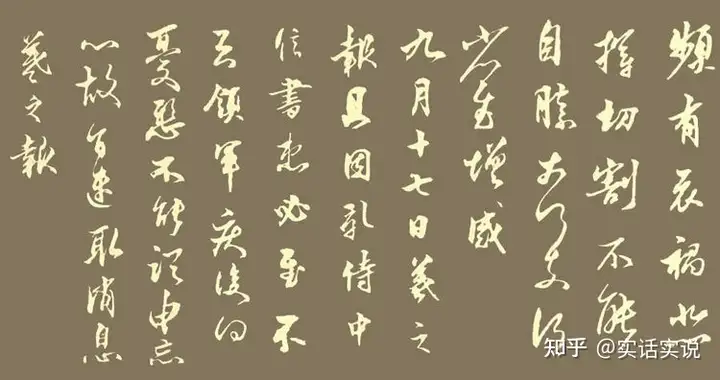 頻有哀禍悲
摧切割不能
自勝奈何奈何
省慰增感
九月十七日羲之
報且因孔侍中
信書想必至不
知領軍疾後問
憂懸不能須臾忘
心故旨遣取消息
羲之報
知乎 @实话实说